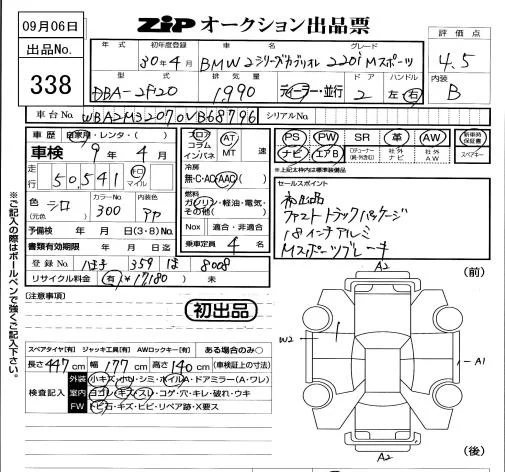 09月06日
ZiP オークション出品票
出品No.
338
年式 初年度登録 車名 グレード
30年4月 BMW 2シリーズカブリオレ 220i Mスポーツ
型式 排気量 ドア ハンドル
DBA-2F20 1990 ディーラー・並行 2 左・右
評価点
4.5
内装
B
車台No. WBA2M32070VB68796 シリアルNo.
車歴 自家用・レンタ・( )
車検 9年4月
走行 50,541 キロ マイル
色(元色) シロ カラーNo. 300 内装
予備検 年 月 日(3・8)No.
書類有効期限 年 月 日迄
登録No. 359 は 8008
リサイクル料金 有(¥17180) 未
フロア コラム インパネ AT MT 速
冷房 無・C・AC・AAC
燃料 ガソリン・軽油・電気・その他( )
Nox 適合・非適合
乗車定員 4 名
PS PW SR 革 AW 新車時保証書
ナビ エアB 社外ナビ 社外AW スペアキー
*上記太枠内は標準装備品
セールスポイント
初出品
ファストトラックパッケージ
18インチアルミ
Mスポーツブレーキ
※ご記入の際はボールペンで強くご記入下さい。
[注意事項]
初出品
A2
(前)
W2
A1
A2
(後)
スペアタイヤ[有] ジャッキ工具[有] AWロックキー[有] ある場合のみ○
長さ 447 cm 幅 177 cm 高さ 140 cm (車検証上の寸法)
検査記入
外装 小キズ・小凹・シミ・ホイルA・ドアミラー(A・ワレ)
室内 ヨゴレ・キズ・スレ・コゲ・穴・キレ・破れ・ウキ
FW トビ石・キズ・ヒビ・リペア跡・X要ス